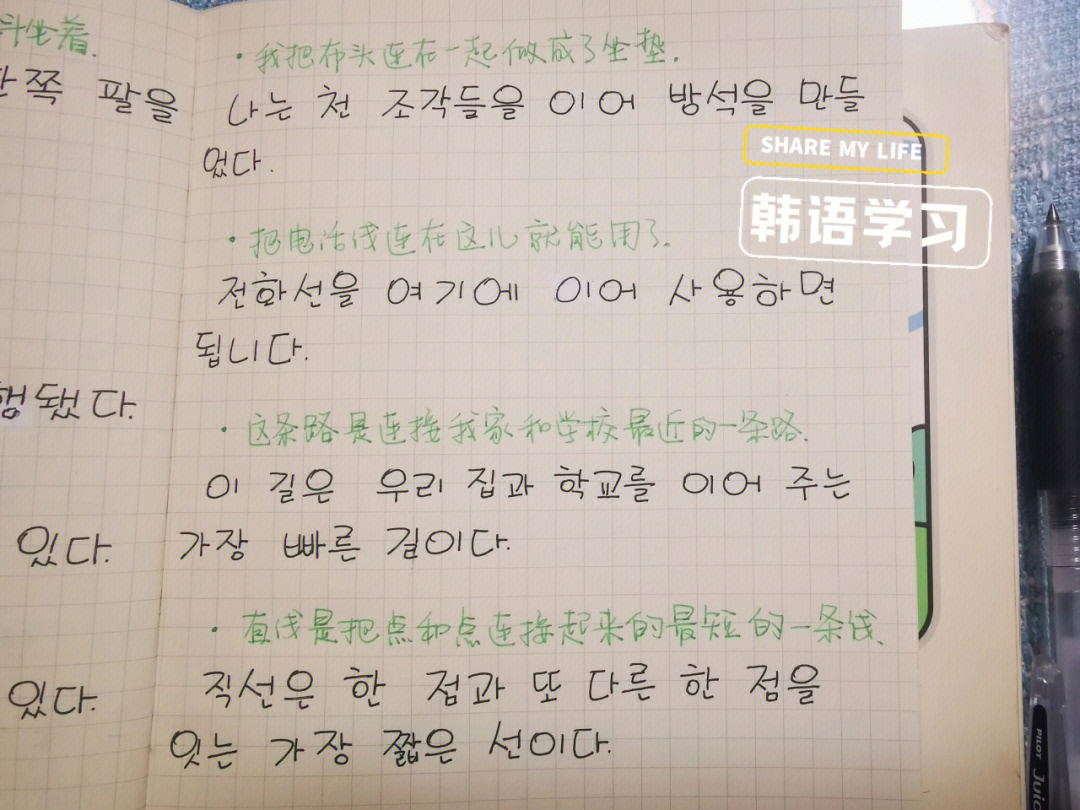 斗坐着.
쪽 팔을
행됐다.
있다.
있다.
·我把布头连在一起做成了坐垫.
나는 천 조각들을 이어 방석을 만들
었다.
·把电话线连在这儿就能用了.
전화선을 여기에 이어 사용하면
됩니다.
·这条路是连接我家和学校最近的一条路.
이 길은 우리 집과 학교를 이어 주는
가장 빠른 길이다.
·直线是把点和点连接起来的最短的一条线.
직선은 한 점과 또 다른 한 점을
잇는 가장 짧은 선이다.
SHARE MY LIFE
韩语学习
PILOT
Jui